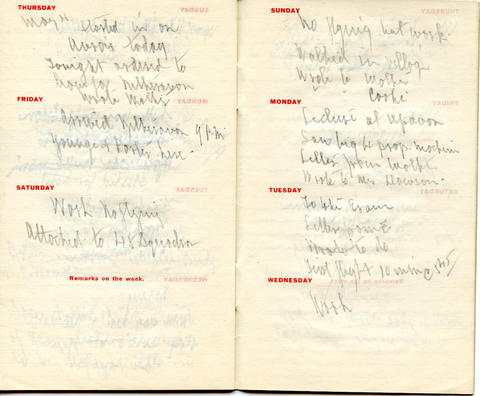 THURSDAY
May 4 Started in on
Avros today
Tonight ordered to
leave for Netheravon
wrote Mother
FRIDAY
Arrived Netheravon 9 P.M.
Young & Foster here.
SATURDAY
Work No flying
Attached to 48 Squadron
Remarks on the week.
SUNDAY
No flying but work.
Walked in village
Wrote to Mother
MONDAY
Lecture at Upavon
Saw big 4 prop. machine
Letter from Mother
Wrote to Mrs Dawson.
TUESDAY
Exam
Letter
to do
flight 40 min @
WEDNESDAY
Work